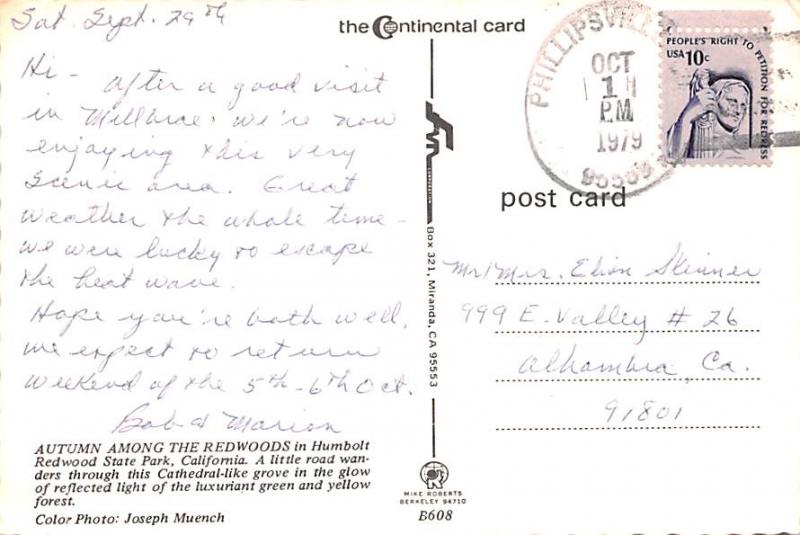 Sat. Sept. 29th
Hi - after a good visit
in Millbrae. we're now
enjoying this very
scenic area. Great
weather the whole time -
we were lucky to escape
the heat wave.
Hope you're both well.
we expect to return
weekend of the 5th - 6th Oct.
Bob & Marion
AUTUMN AMONG THE REDWOODS in Humbolt
Redwood State Park, California. A little road wan-
ders through this Cathedral-like grove in the glow
of reflected light of the luxuriant green and yellow
forest.
Color Photo: Joseph Muench
the Continental card
CORPORATION
Box 321, Miranda, CA 95553
MIKE ROBERTS
BERKELEY 94710
B608
PHILLIPSVILLE
OCT
1
PM
1979
95559
PEOPLE'S RIGHT TO PETITION FOR REDRESS
USA 10c
post card
Mr/Mrs. Skinner
999 E. Valley # 26
Alhambra, Ca.
91801